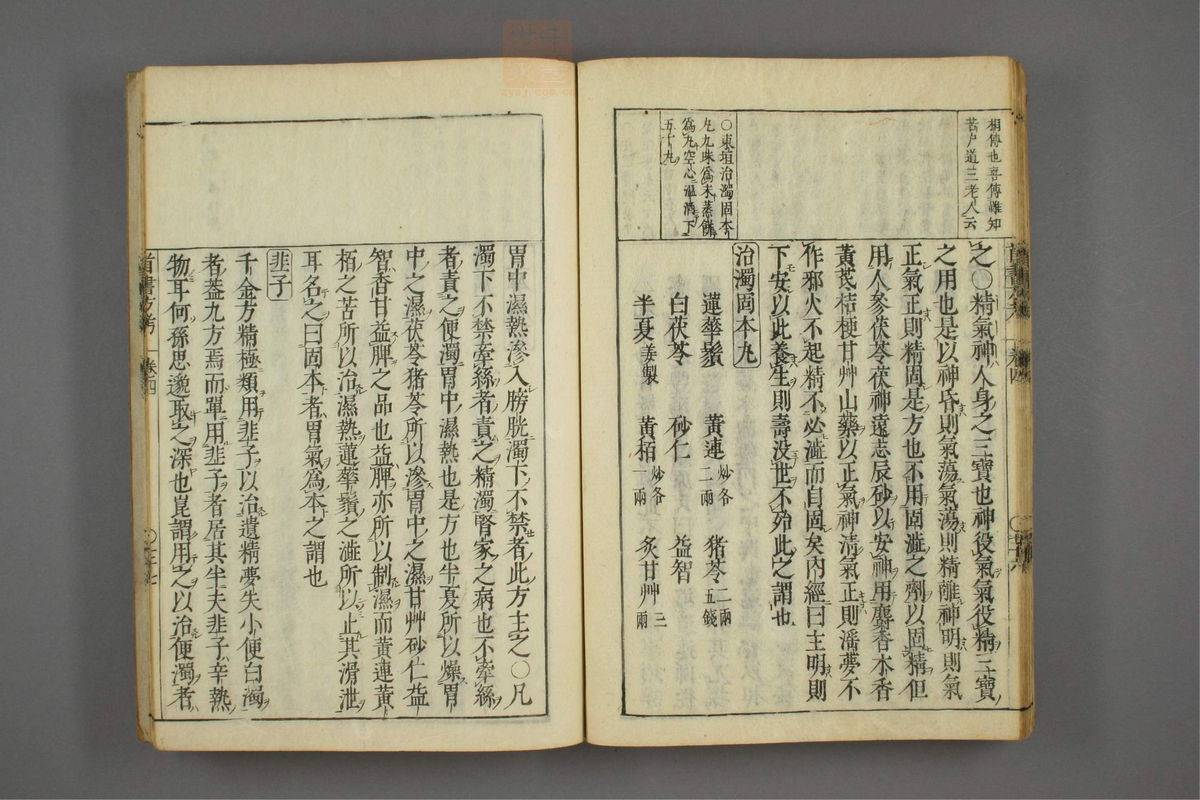 相傳也喜傳雖知
苦户道三老人云
之〇精氣神人身之三寶也神役氣氣役精三寶
之用也是以神昏則氣蕩氣蕩則精離神明則氣
正氣正則精固是方也不用固澁之劑以固精但
用人參茯苓茯神遠志辰砂以安神用麝香木香
黃芪桔梗甘艸山藥以正氣神清氣正則潘夢不
作邪火不起精不必澁而自固矣內經曰主明則
下安以此養生則壽没世不殆此之謂也
〇東垣治濁固本
丸九味爲末蒸餅
爲丸空心温酒下
五十丸
治濁固本丸
蓮蕐鬚 黃連炒各二兩 猪苓二兩五錢
白茯苓 砂仁 益智
半夏姜製 黃栢炒各一兩 炙甘艸三兩
首書方考 卷四 〇三十六
胃中濕熱滲入膀胱濁下不禁者此方主之〇凡
濁下不禁牽絲者責之精濁腎家之病也不牽絲
者責之便濁胃中濕熱也是方也半夏所以燥胃
中之濕茯苓猪苓所以滲胃中之濕甘艸砂仁益
智香甘益脾之品也益脾亦所以制濕而黃連黃
栢之苦所以治濕熱蓮蕐鬚之澁所以止其滑泄
耳名之曰固本者胃氣爲本之謂也
韭子
千金方精極類用韭子以治遺精夢失小便白濁
者葢九方焉而單用韭子者居其半夫韭子辛熱
物耳何孫思邈取之深也崑謂用之以治便濁者
首書方考 卷四 〇三十七